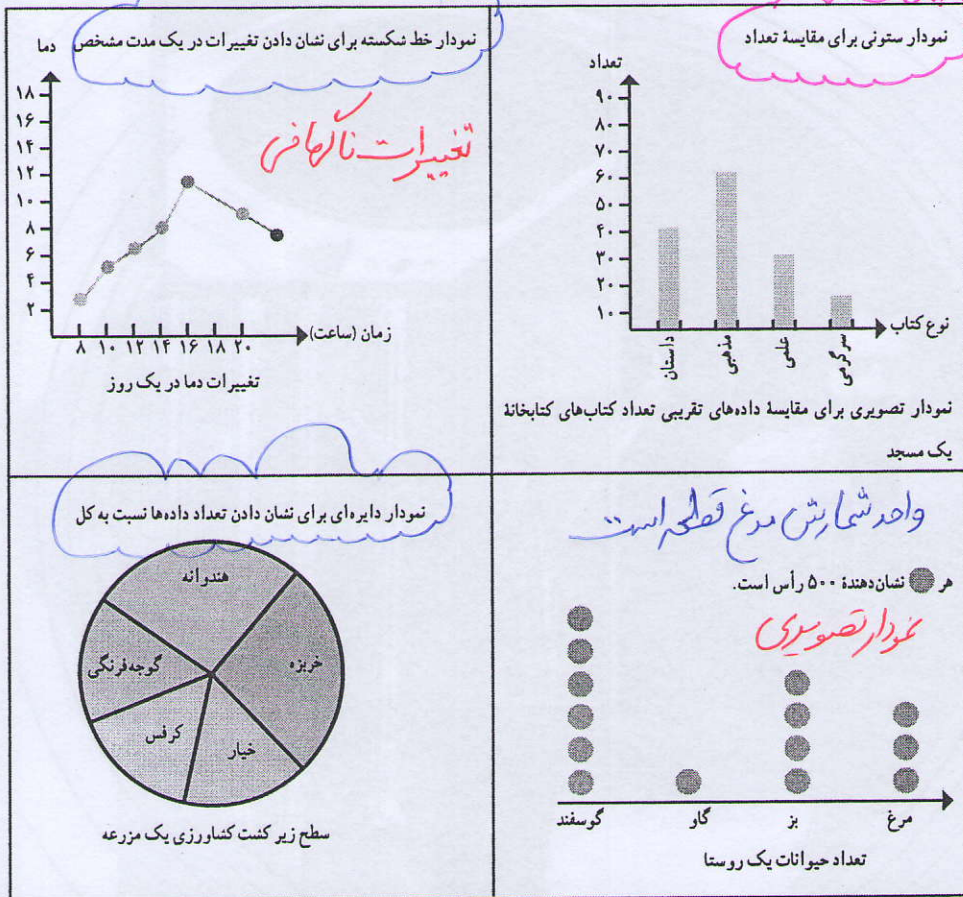 نمودار ستونی برای مقایسهٔ تعداد
تعداد
۹۰
۸۰
۷۰
۶۰
۵۰
۴۰
۳۰
۲۰
۱۰
نوع کتاب
داستان
مذهبی
علمی
سرگرمی
نمودار تصویری برای مقایسهٔ داده‌های تقریبی تعداد کتاب‌های کتابخانهٔ
یک مسجد
نمودار خط شکسته برای نشان دادن تغییرات در یک مدت مشخص
دما
تغییرات ناگهانی
۱۸
۱۶
۱۴
۱۲
۱۰
۸
۶
۴
۲
زمان (ساعت)
۸ ۱۰ ۱۲ ۱۴ ۱۶ ۱۸ ۲۰
تغییرات دما در یک روز
واحد شمارش مرغ قطعه است
هر نشان‌دهندهٔ ۵۰۰ رأس است.
نمودار تصویری
گوسفند
گاو
بز
مرغ
تعداد حیوانات یک روستا
نمودار دایره‌ای برای نشان دادن تعداد داده‌ها نسبت به کل
هندوانه
خربزه
گوجه‌فرنگی
کرفس
خیار
سطح زیر کشت کشاورزی یک مزرعه